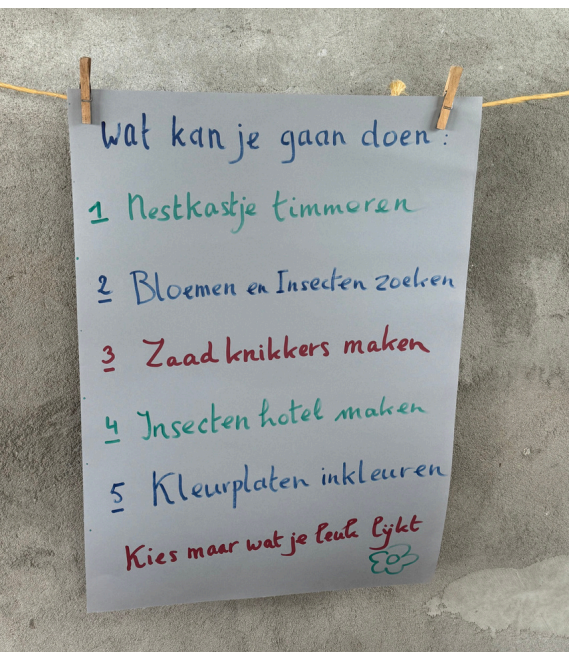 Wat kan je gaan doen:
1 Nestkastje timmeren
2 Bloemen en Insecten zoeken
3 Zaad knikkers maken
4 Insecten hotel maken
5 Kleurplaten inkleuren
Kies maar wat je leuk lijkt